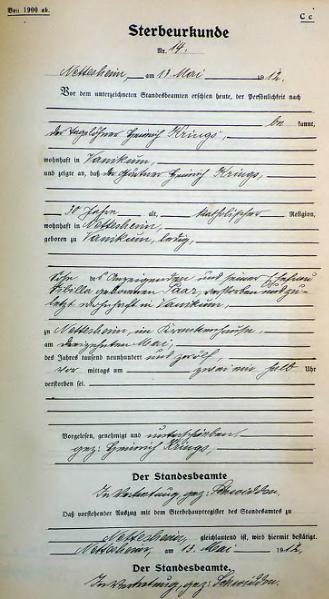 Von 1900 ab.
C c
Sterbeurkunde
Nr. 14.
Nettersheim, am 13 Mai 1912.
Vor dem unterzeichneten Standesbeamten erschien heute, der Persönlichkeit nach
be kannt,
der Tagelöhner Heinrich Krings,
wohnhaft in Vanikum,
und zeigte an, daß der Heinrich Krings,
30 Jahre alt, katholischer Religion,
wohnhaft in Nettersheim,
geboren zu Vanikum, ledig,
Sohn des Anzeigenden und seiner Ehefrau
Sibilla geborenen Paar, verstorben und zu-
letzt wohnhaft in Vanikum,
zu Nettersheim, im Krankenhause,
am dreizehnten Mai,
des Jahres tausend neunhundert und zwölf,
vor mittags um zwei ein halb Uhr
verstorben sei.
Vorgelesen, genehmigt und unterschrieben,
gez: Heinrich Krings,
Der Standesbeamte
In Vertretung, gez:
Daß vorstehender Auszug mit dem Sterbehauptregister des Standesamtes zu
Nettersheim, gleichlautend ist, wird hiermit bestätigt.
Nettersheim, am 13. Mai 1912.
Der Standesbeamte.
In Vertretung, gez: